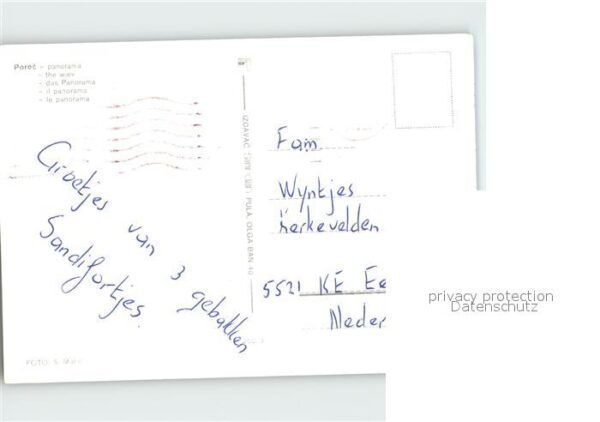 Poreč – panorama
– the wiev
– das Panorama
– il panorama
– le panorama
Groetjes van 3 gebakken
Sandifortjes.
IZDAVAČ PULA OLGA BAN 40
Fam
Wyntjes
Kerkevelden
5521 KE Ee
Neder
FOTO: S.
privacy protection
Datenschutz